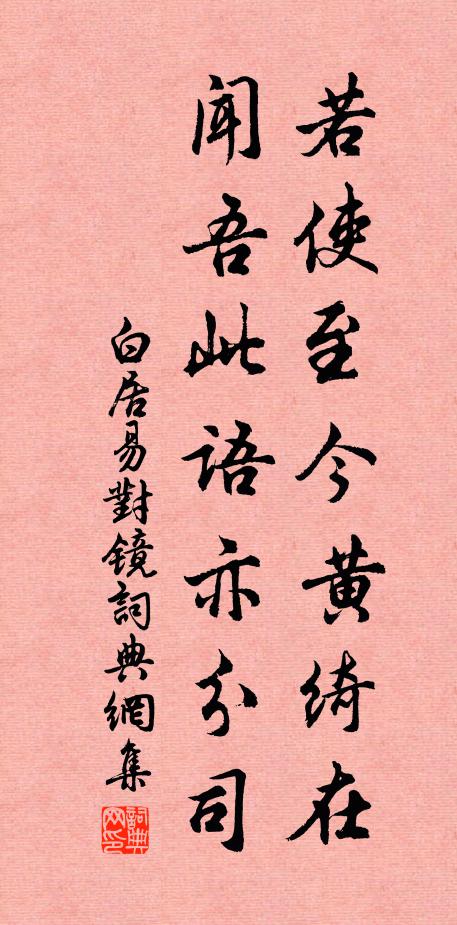 若使至今黄綺在
聞吾此語亦分司
白居易對镜詞典網集
詞典网印